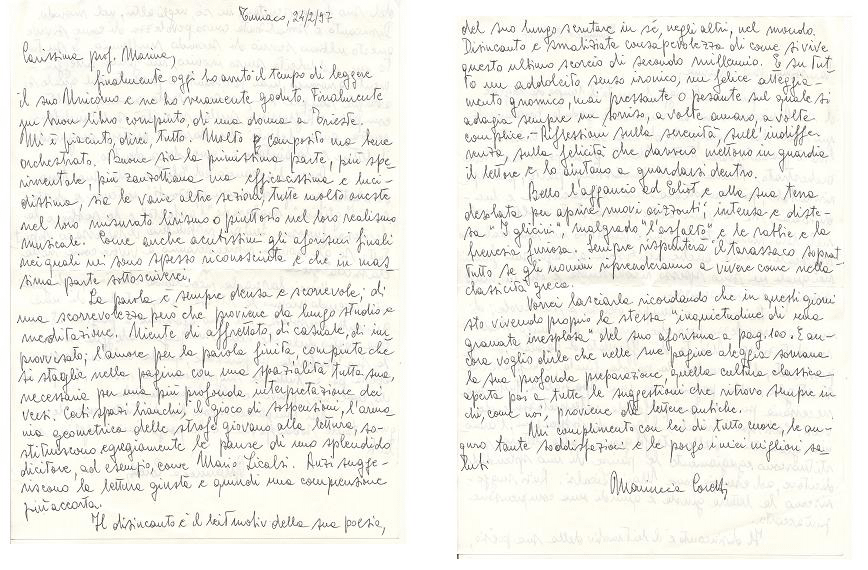 Turriaco, 24/2/97
Carissima prof. Marina,
finalmente oggi ho avuto il tempo di leggere
il suo Unicorno e ne ho veramente goduto. Finalmente
un buon libro compiuto, di una donna a Trieste.
Mi è piaciuto, direi, tutto. Molto composito ma bene
orchestrato. Buone sia la primissima parte, più spe-
rimentale, più zanzottiana ma efficacissima e luci-
dissima, sia le varie altre sezioni, tutte molto oneste
nel loro misurato lirismo o piuttosto nel loro realismo
musicale. Come anche acutissimi gli aforismi finali
nei quali mi sono spesso riconosciuta e che in mas-
sima parte sottoscriverei.
La parola è sempre densa e scorrevole; di
una scorrevolezza però che proviene da lungo studio e
meditazione. Niente di affrettato, di casuale, di im-
provvisato; l'amore per la parola finita, compiuta che
si staglia nella pagina con una spazialità tutta sua,
necessaria per una più profonda interpretazione dei
versi. Certi spazi bianchi, il gioco di sospensioni, l'armo-
nia geometrica delle strofe giovano alla lettura, so-
stituiscono egregiamente le pause di uno splendido
dicitore, ad esempio, come Mario Licalsi. Anzi sugge-
riscono la lettura giusta e quindi una comprensione
più accorta.
Il disincanto è il leit motiv della sua poesia,
del suo lungo scrutare in sé, negli altri, nel mondo.
Disincanto e smaliziata consapevolezza di come si vive
questo ultimo scorcio di secondo millennio. E su tut-
to un addolcito senso ironico, un felice atteggia-
mento gnomico, mai pressante o pesante sul quale si
adagia sempre un sorriso, a volte amaro, a volte
complice. - Riflessioni sulla serenità, sull'indiffe-
renza, sulla felicità che davvero mettono in guardia
il lettore e lo aiutano a guardarsi dentro.
Bello l'aggancio ad Eliot e alla sua terra
desolata per aprire nuovi orizzonti; intensa e diste-
sa "I glicini", malgrado "l'asfalto" e le rabbie e la
frenesia furiosa. Sempre rispunterà il tarassaco soprat-
tutto se gli uomini riprenderanno a vivere come nella
classicità greca.
Vorrei lasciarla ricordando che in questi giorni
sto vivendo proprio la stessa "inquietudine di una
granata inesplosa" del suo aforisma a pag. 100. E an-
cora voglio dirle che nelle sue pagine aleggia sovrana
la sua profonda preparazione, quella cultura classica
aperta poi a tutte le suggestioni che ritrovo sempre in
chi, come noi, proviene da lettere antiche.
Mi complimento con lei di tutto cuore, le au-
guro tante soddisfazioni e le porgo i miei migliori sa-
luti